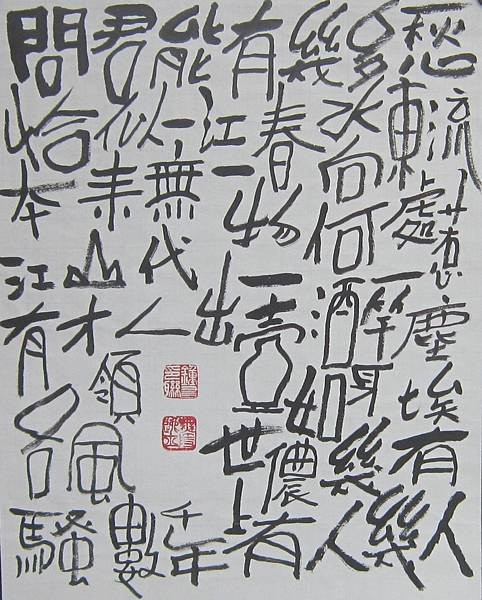 問君能有幾多愁
恰似一江春水向東流
本來無一物何處惹塵埃
江山代有才人出
各領風騷數千年
一壺酒一竿身
世上如儂有幾人
有幾人